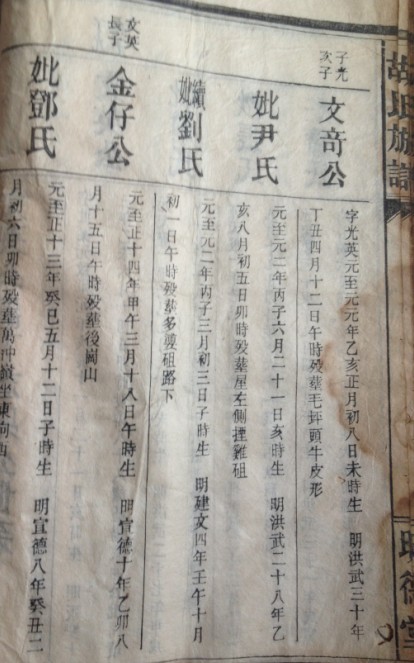 胡氏族譜
子光
次子
文奇公
字光英元至元元年乙亥正月初八日未時生 明洪武三十年
丁丑四月十二日午時殁葬毛坪頭牛皮形
妣尹氏
元至元二年丙子六月二十一日亥時生 明洪武二十八年乙
亥八月初五日卯時殁葬屋左側挂雞
續妣劉氏
元至元二年丙子三月初三日子時生 明建文四年壬午十月
初一日午時殁葬多婆 路下
文英
長子
金仔公
元至正十四年甲午三月十八日午時生 明宣德十年乙卯八
月十五日午時殁葬後崗山
妣鄧氏
元至正十三年癸巳五月十二日子時生 明宣德八年癸丑二
月初六日卯時殁葬萬冲嶺坐東向西